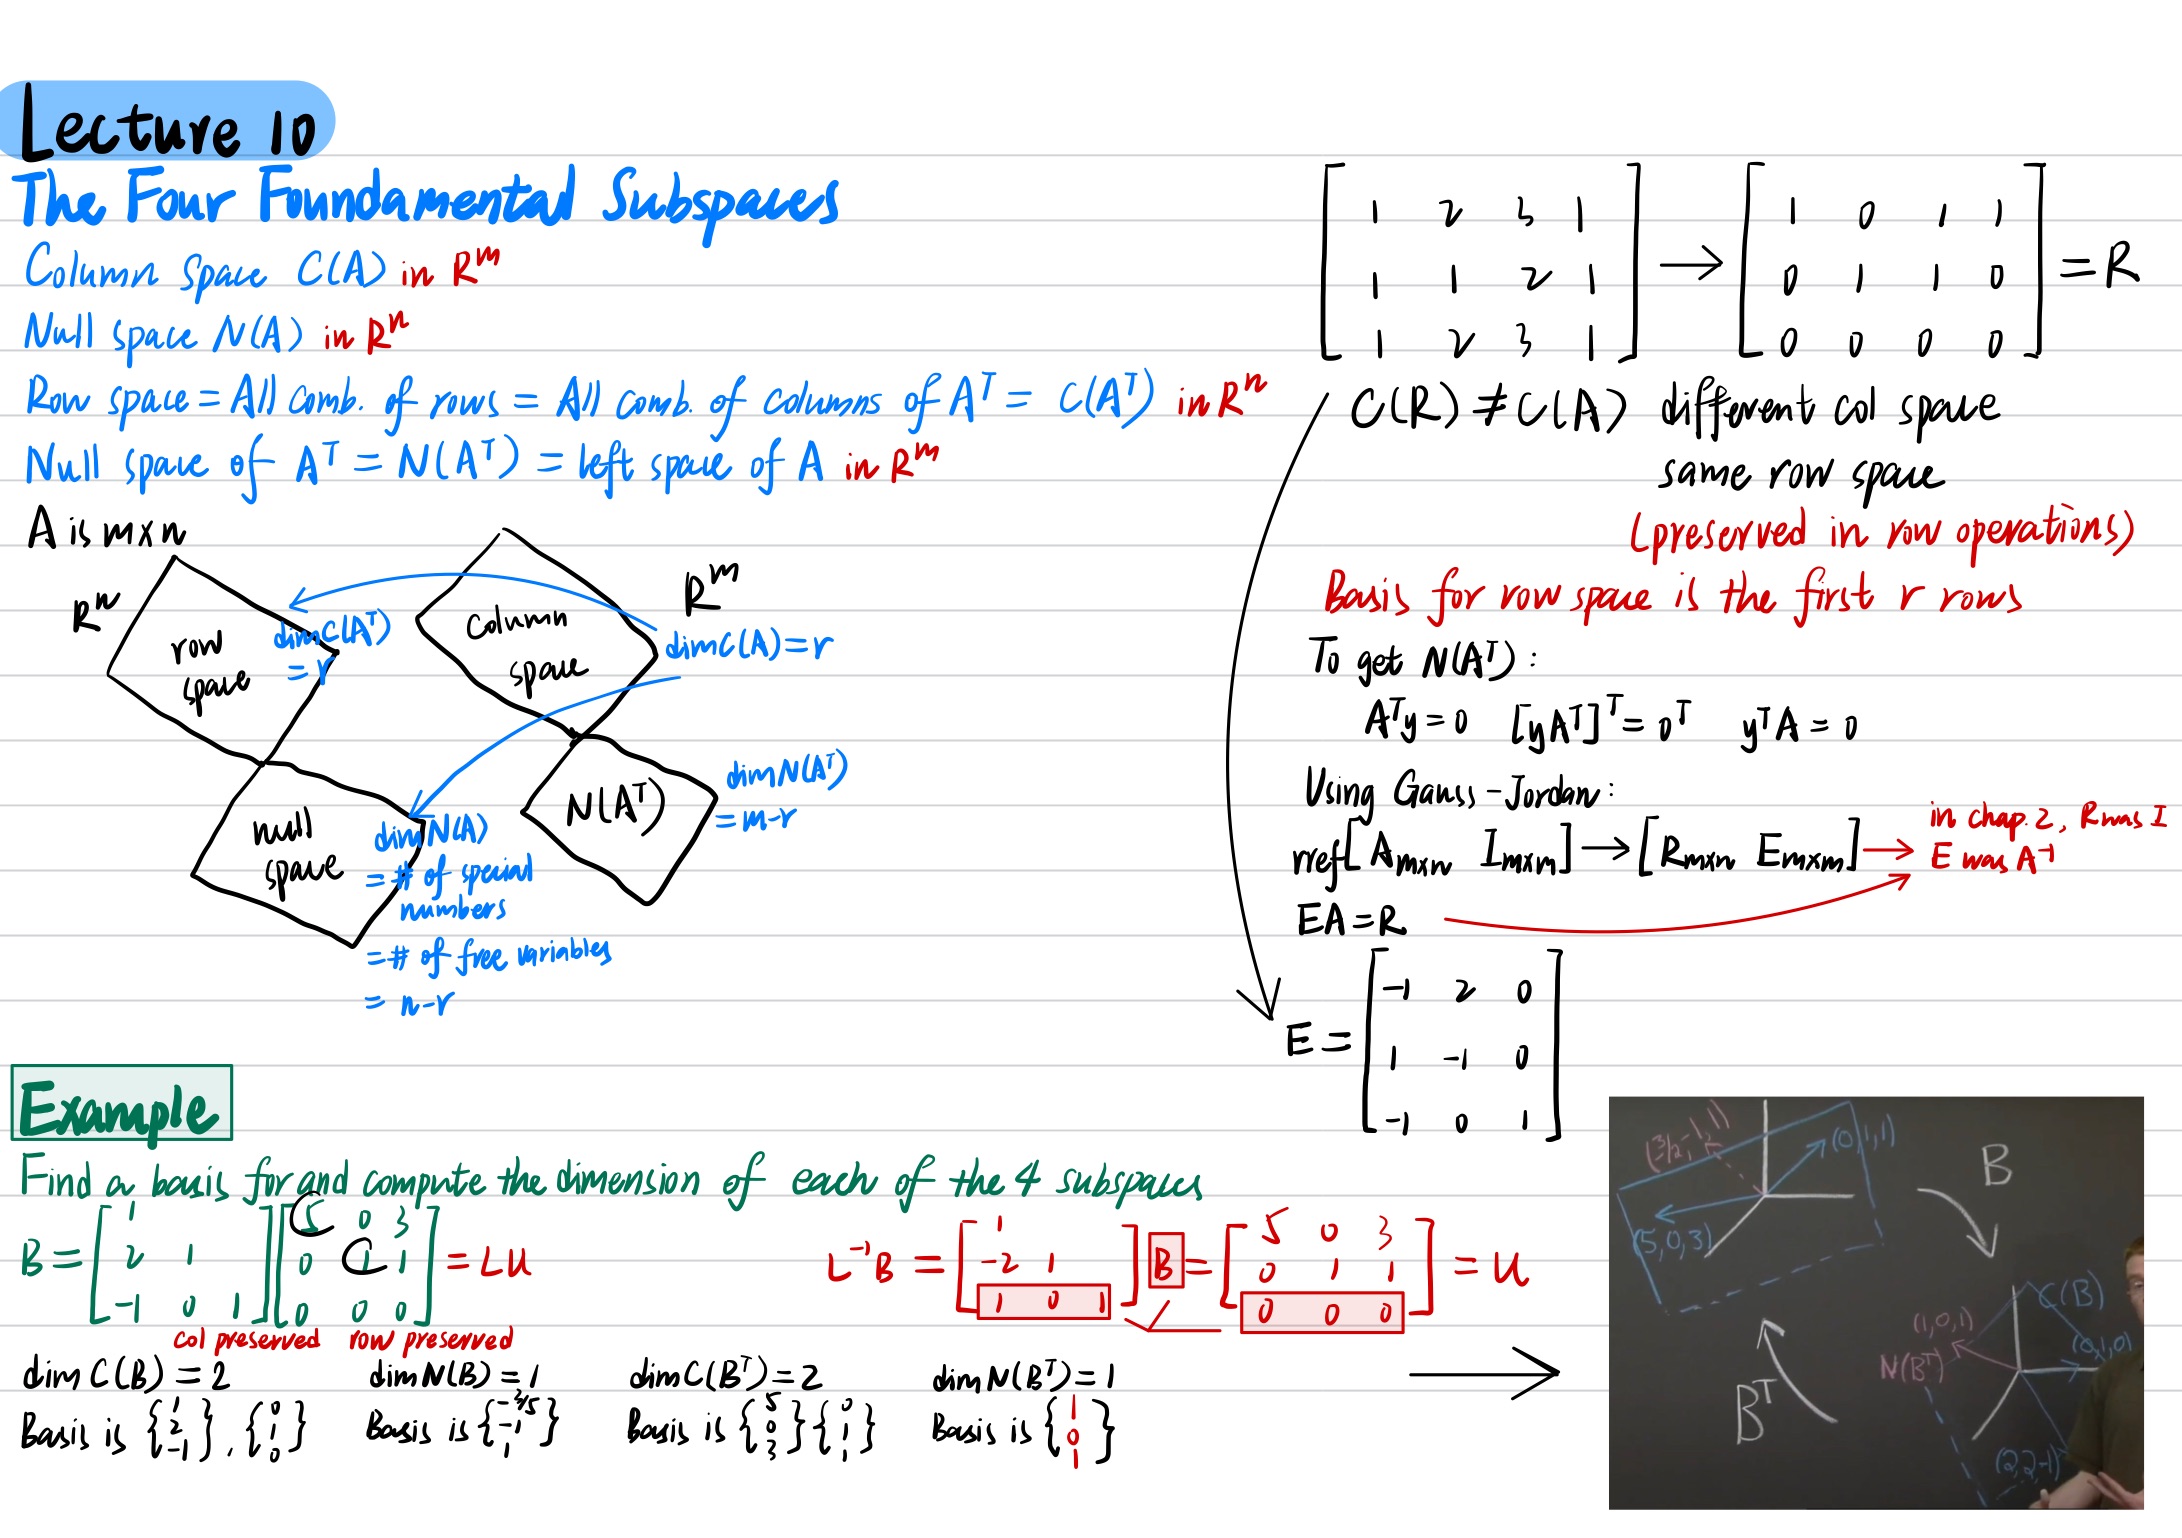 Lecture 10
The Four Foundamental Subspaces
Column space C(A) in Rᵐ
Null space N(A) in Rⁿ
Row space = All comb. of rows = All comb. of columns of Aᵀ = C(Aᵀ) in Rⁿ
Null space of Aᵀ = N(Aᵀ) = left space of A in Rᵐ
A is m×n
Rⁿ
row space
dim C(Aᵀ) = r
column space
Rᵐ
dim C(A) = r
null space
dim N(A)
= # of special numbers
= # of free variables
= n-r
N(Aᵀ)
dim N(Aᵀ)
= m-r
[1 2 3 1] → [1 0 1 1]
[1 1 2 1] [0 1 1 0] = R
[1 2 3 1] [0 0 0 0]
C(R) ≠ C(A) different col space
same row space
(preserved in row operations)
Basis for row space is the first r rows
To get N(Aᵀ) :
Aᵀy = 0 [yAᵀ]ᵀ = 0ᵀ yᵀA = 0
Using Gauss-Jordan:
rref[Aₘₓₙ Iₘₓₘ] → [Rₘₓₙ Eₘₓₘ] →
in chap. 2, R was I
E was A⁻¹
EA = R
E = [-1 2 0]
[1 -1 0]
[-1 0 1]
Example
Find a basis for and compute the dimension of each of the 4 subspaces
B = [1] [5 0 3]
[2 1] [0 1 1] = LU
[-1 0 1] [0 0 0]
col preserved row preserved
L⁻¹B = [1] B = [5 0 3] = U
[-2 1] [0 1 1]
[1 0 1] [0 0 0]
dim C(B) = 2 dim N(B) = 1 dim C(Bᵀ) = 2 dim N(Bᵀ) = 1
Basis is {1 2 -1}, {0 1 0} Basis is {-3/5 -1 1} Basis is {5 0 3} {0 1 1} Basis is {1 0 1}
(3/2,-1,1)
(0,1,1)
B
(5,0,3)
C(B)
(1,0,1)
(0,1,0)
N(Bᵀ)
Bᵀ
(2,2,-1)